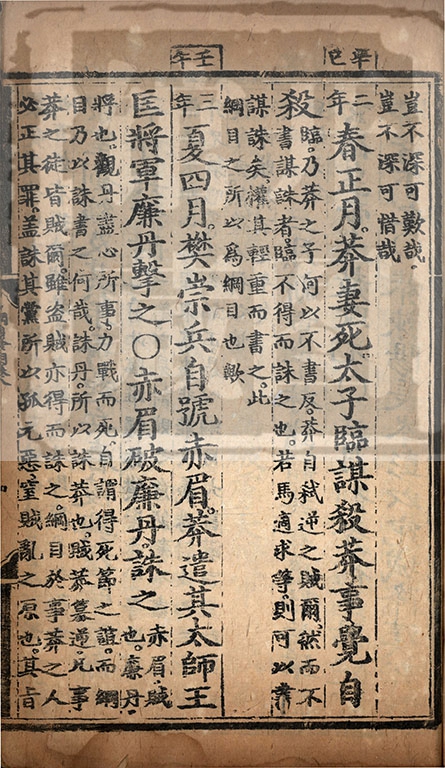 辛巳
豈不深可歎哉。
豈不深可惜哉
二年春正月。莽妻死太子臨謀殺莽事覺自
殺
臨。乃莽之子何以不書反。莽自弒逆之賊爾。然而不
書謀誅者。臨不得而誅之也。若馬適求等。則可以書
謀誅矣。權其輕重而書之。此
綱目之所以爲綱目也歟
壬午
三年夏四月。樊崇兵自號赤眉。莽遣其太師王
匡將軍廉丹擊之○赤眉破廉丹。誅之
赤眉。賊
也。廉丹。
將也。觀丹盡心所事。力戰而死。自謂得死節之誼。而綱
目乃以誅書之何哉。誅丹。所以誅莽也。賊莽篡逆。凡事
莽之徒皆賊爾。雖盜賊亦得而誅之。綱目於事莽之人
必正其罪。蓋誅其黨所以孤元惡。窒賊亂之原也。其旨